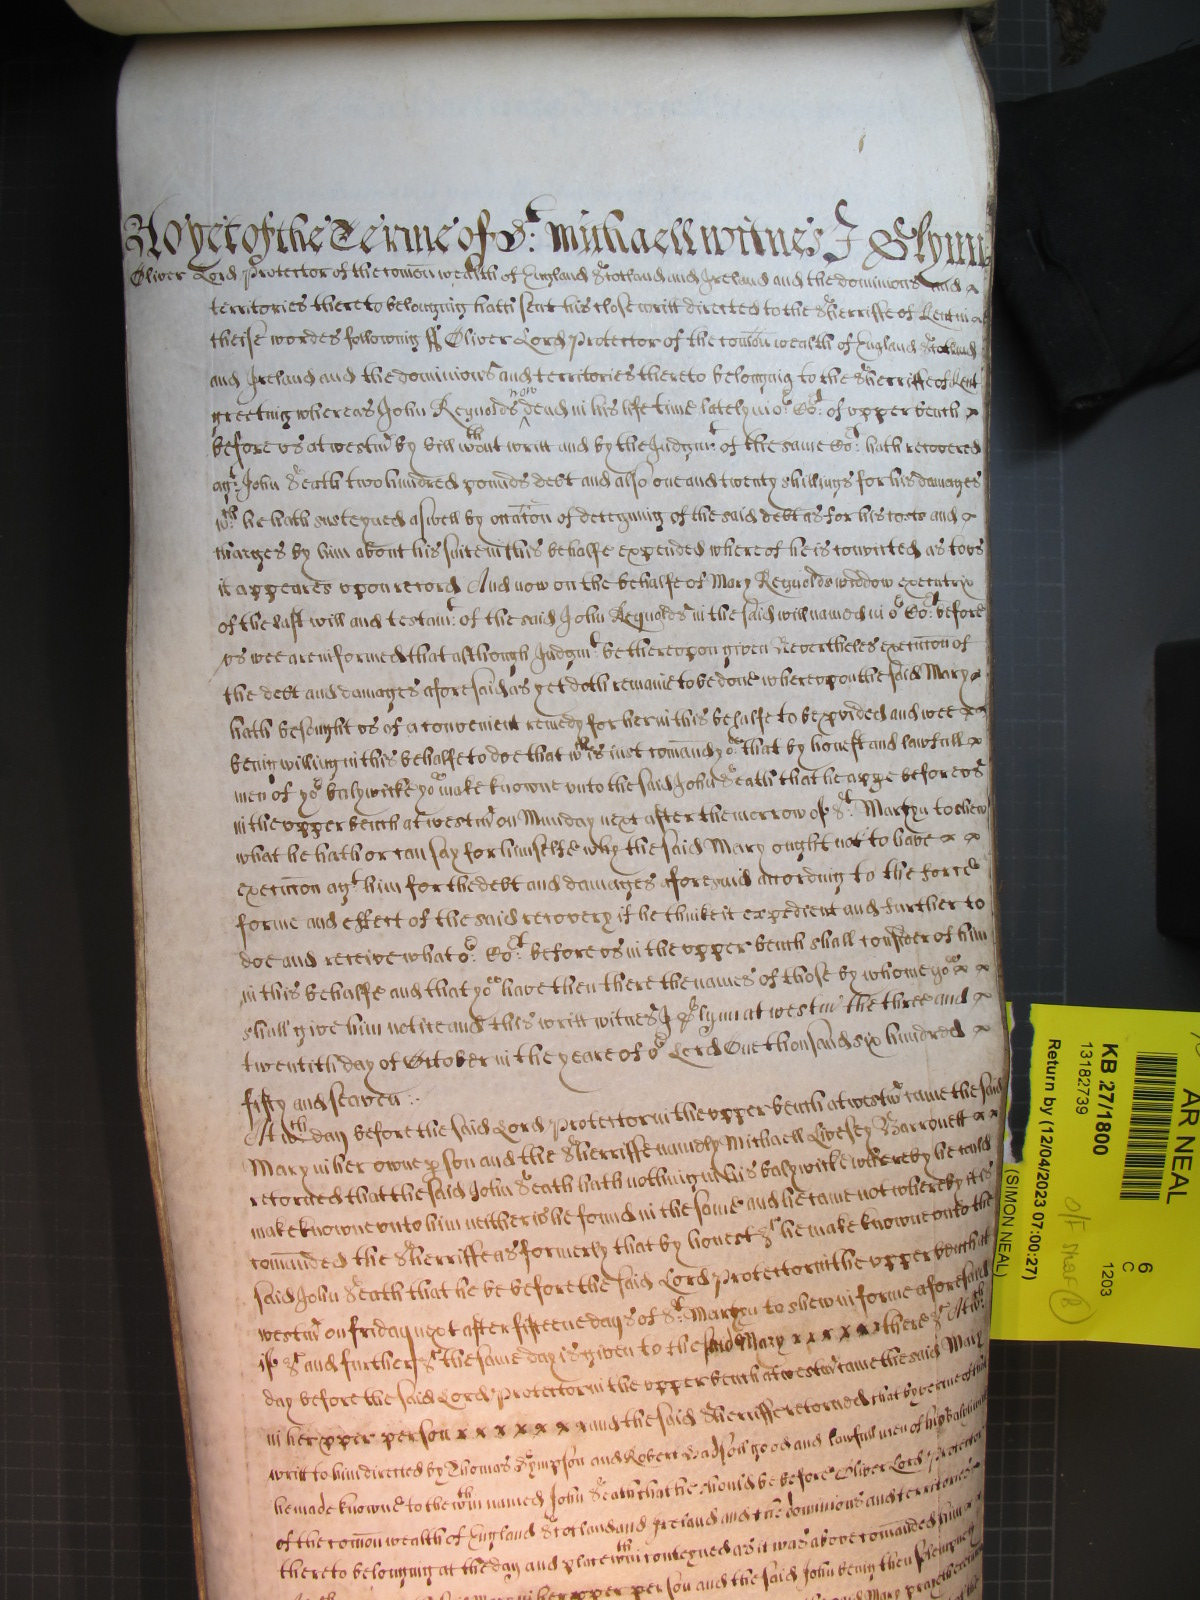 As yet of the Terme of St. Michaell witnes J Glynn
Oliver Lord Protector of the comon wealth of England Scotland and Ireland and the dominions and x
territories thereto belonging hath sent his close writt directed to the Sherriffe of Kent in
theise wordes following ss Oliver Lord Protector of the comon wealth of England Scotland
and Ireland and the dominions and territories thereto belonging to the Sherriffe of Kent
greeting whereas John Reynolds now dead in his life time lately in or. Cort. of upper bench x
before us at westmr by bill wthout writt and by the Judgmt. of the same Cort. hath recovered
agt. John Heath two hundred pounds debt and also one and twenty shillings for his damages
wch. he hath susteyned aswell by occacon of deteyning of the said debt as for his costs and x
charges by him about his suite in this behalfe expended whereof he is convicted as to us
it appeares upon record And now on the behalfe of Mary Reynolds widdow executrix
of the last will and testamt. of the said John Reynolds in the said will named in or Cort. before
us wee are informed that although Judgmt. be thereupon given Nevertheles execucon of
the debt and damages aforesaid as yet doth remaine to be done whereupon the said Mary x
hath besought us of a convenient remedy for her in this behalfe to be pvided and wee x x
being willing in this behalfe to doe that wch is just comand you that by honest and lawfull x
men of yor balywicke you make knowne unto the said John Heath that he appe before us
in the upper bench at westmr on Munday next after the morrow of St. Martyn to shew
what he hath or can say for himselfe why the said Mary ought not to have x x
execucon agt. him for the debt and damages aforesaid according to the force
forme and effect of the said recovery if he thinke it expedient and further to
doe and receive what or. Cort. before us in the upper bench shall consider of him
in this behalfe and that you have then there the names of those by whome you x x
shall give him notice and this writt witnes J Glynn at westmr the three and x
twentith day of October in the yeare of or Lord One thousand six hundred x
fifty and seaven
At wch day before the said Lord Protector in the upper bench at westmr came the said
Mary in her owne pson and the Sherriffe namely Michaell Livesey Barronett x x
retorned that the said John Heath hath nothing in his balywicke whereby he could
make knowne unto him neither is he found in the same and he came not whereby it is
comanded the Sherriffe as formerly that by honest &c he make knowne unto the
said John Heath that he be before the said Lord Protector in the upper bench at
westmr on friday next after fifteene dayes of St. Martyn to shew in forme aforesaid
if &c and further &c the same day is given to the said Mary x x x x x x there &c At wch.
day before the said Lord Protector in the upper bench at westmr came the said Mary
in her pper person x x x x x x x and the said Sherriffe retorned that by vertue of the
writt to him directed by Thomas Sympson and Robert good and lawfull men of his balywicke
he made knowne to the wthin named John Heath that he should be before Oliver Lord Protector
of the comon wealth of England Scotland and Ireland and the dominions and territories
thereto belonging at the day and place wthin conteyned as it was above comanded him
in her pper person and the said John being then solempney
AR NEAL
KB 27/1800
13182739
6
C
1203
Return by (12/04/2023 07:00:27)
(SIMON NEAL)